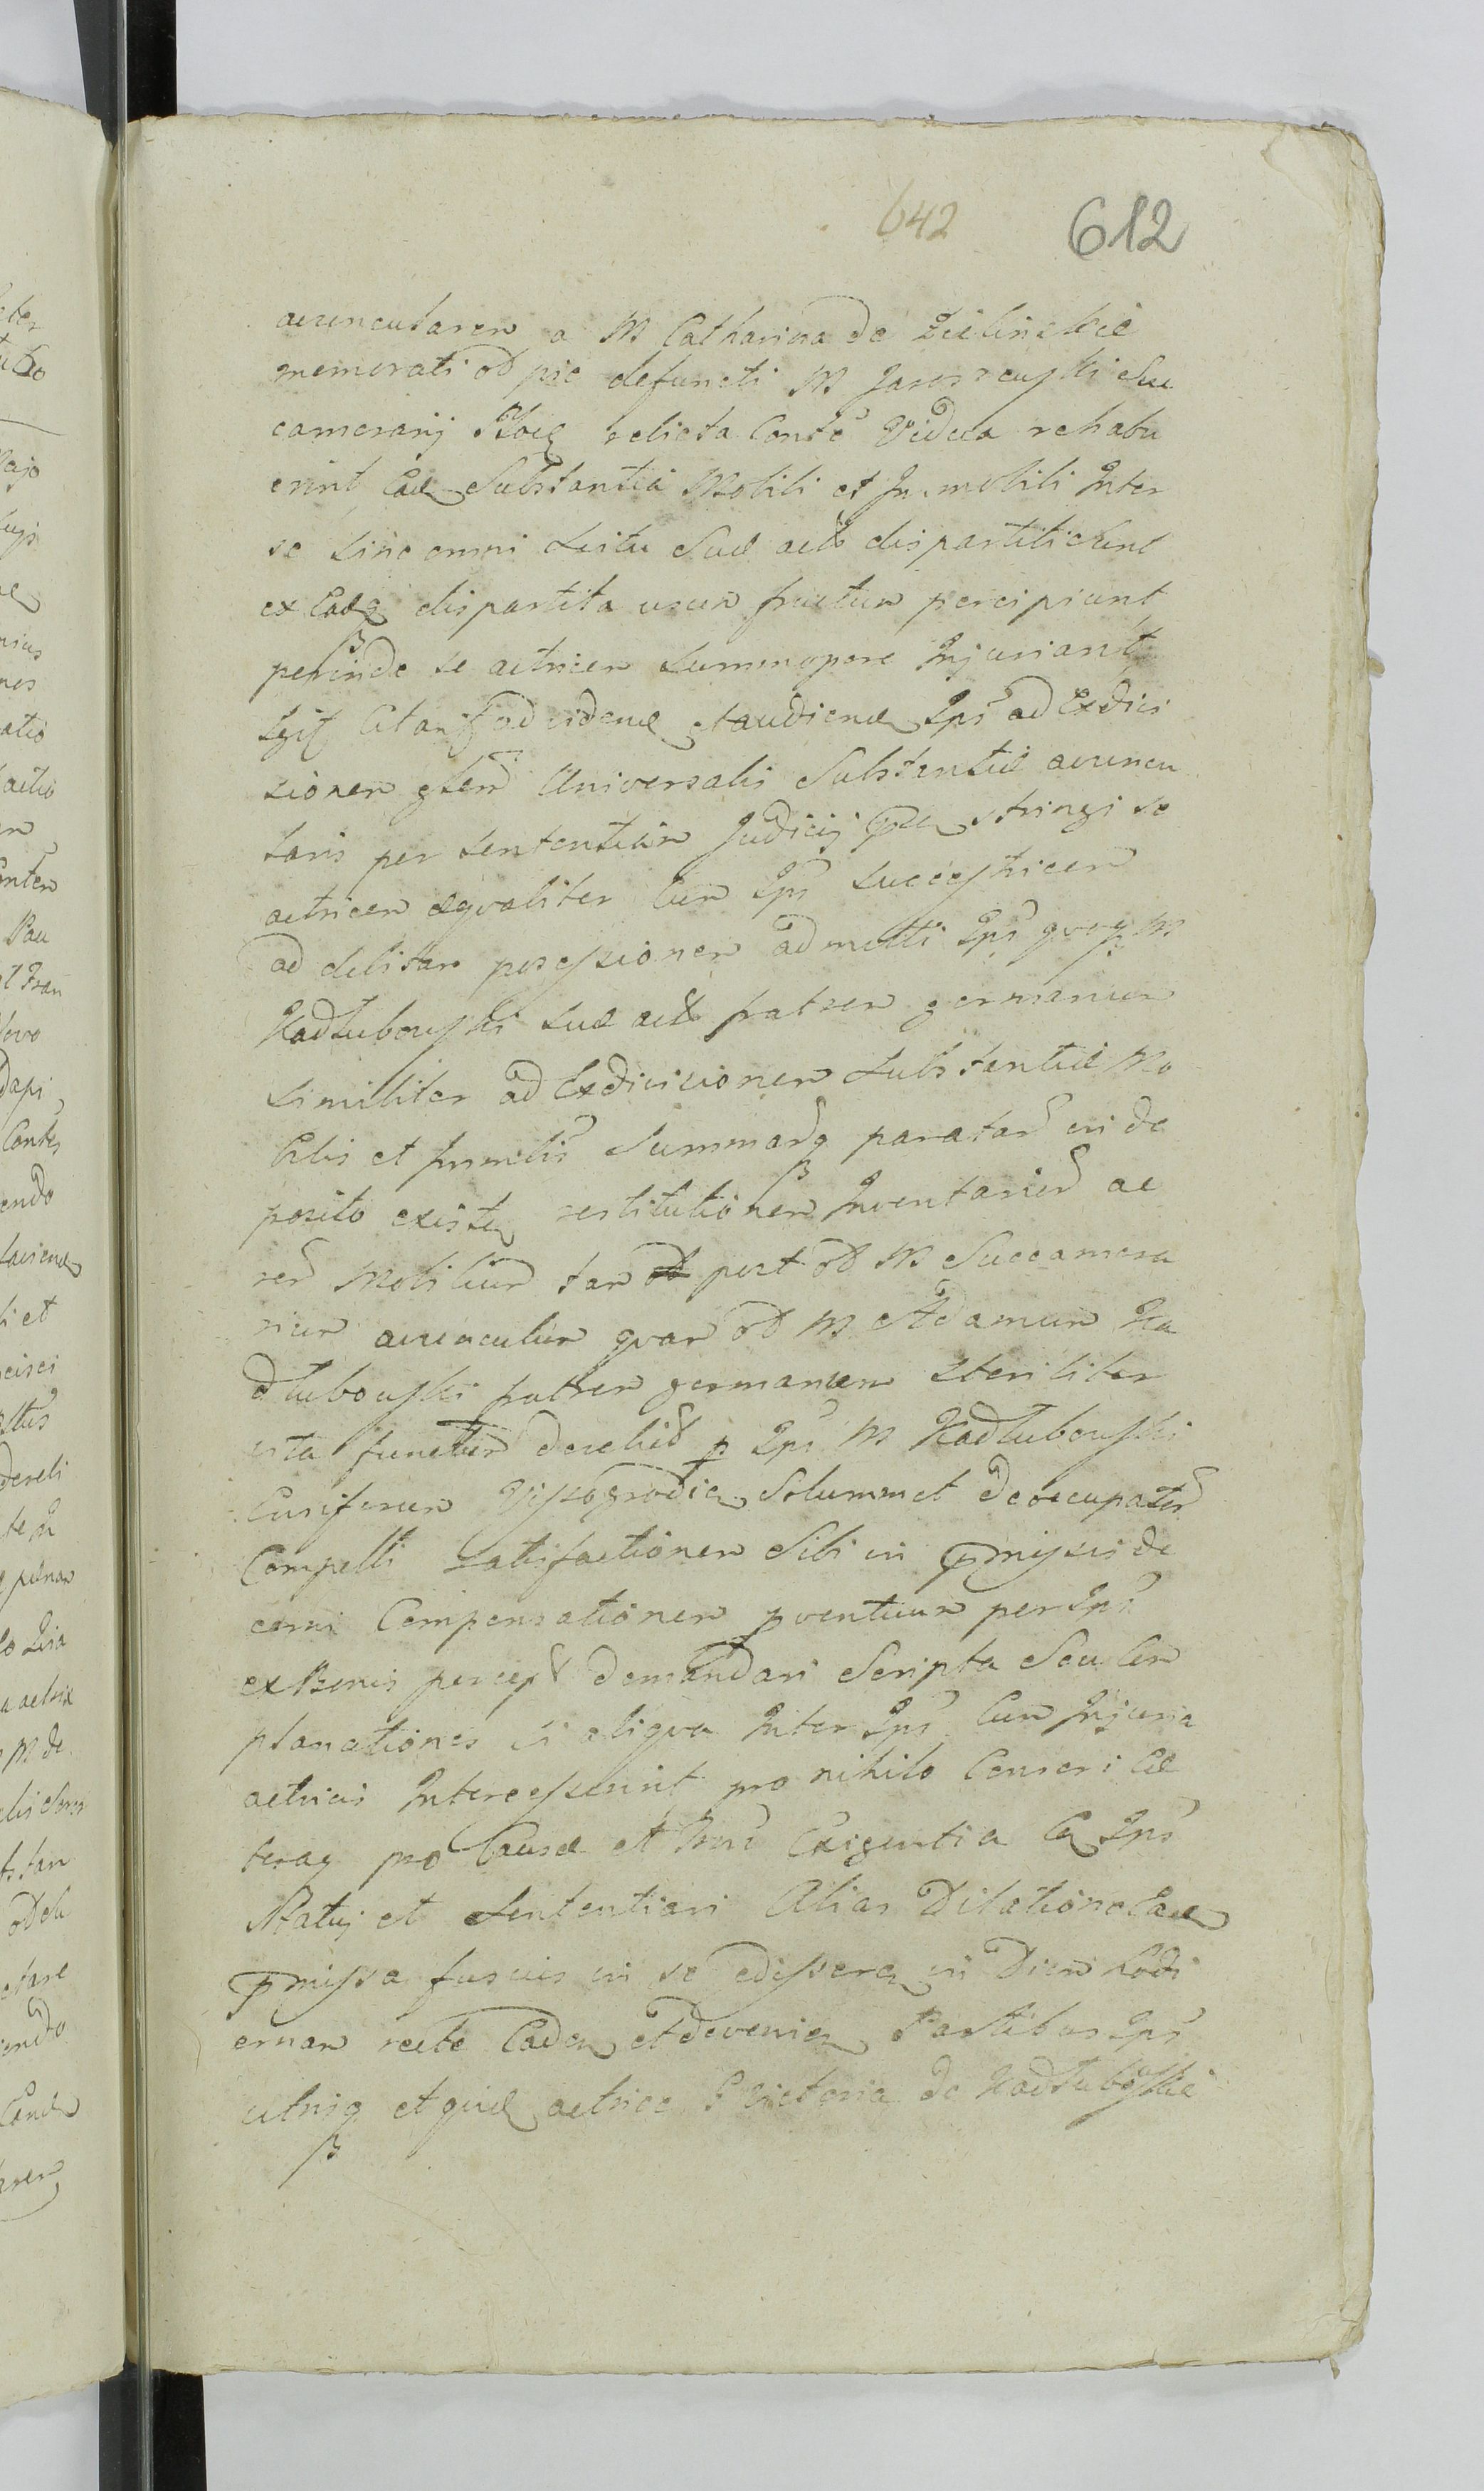 642 612
avuncularem a M Catharina de Zielinskie
memorati od pie defuncti M Jaroszewski Suc
camerarij relicta Conte Vidua rehabu
erint Substantia Mobili et Immobili Inter
se sine omni scitu Suae dispartiti sunt
ex dispartita usum fructum percipiunt
perinde se actricem summopere Injuriant
ad vidend et audiend Ips ad Exdivi
sionem Universalis Substantiae avuncu
laris per sententiam Judicij stringi se
actricem aequaliter Cum Ips successtricem
ad debitam possessionem admitti Ips M
Kadłubowski fratrem germanum
similiter ad Exdivisionem Substantiae Mo
bilis et Summarq paratar in de
posito existen restitutionem Inventarior ac
rer Mobilium tam post od M Succamera
rium avunculum quam od M Adamum Ka
dłubowski fratrem germanum steriliter
vita functum derelict p Ips M Kadłubowski
Ensiferum Vissogrodien Solummet deoccupatar
Compelli satisfactionem Sibi in pmissis de
cerni Compensationem pventuum per Ips
ex Bonis percept demandari Scripta Seu Com
planationes si aliqua Inter Ips Cum Injuria
actricis Intercesserint pro nihilo Censeri Cae
teraq pro Causae et Exigentia Ips
Statuj et sententiari Alias Dilatione
pmissa fusius in se edisseren in Diem hodi
ernam recte Caden et devenien Partibus Ips
utrisq actrice Victoria de Kadłubowskie